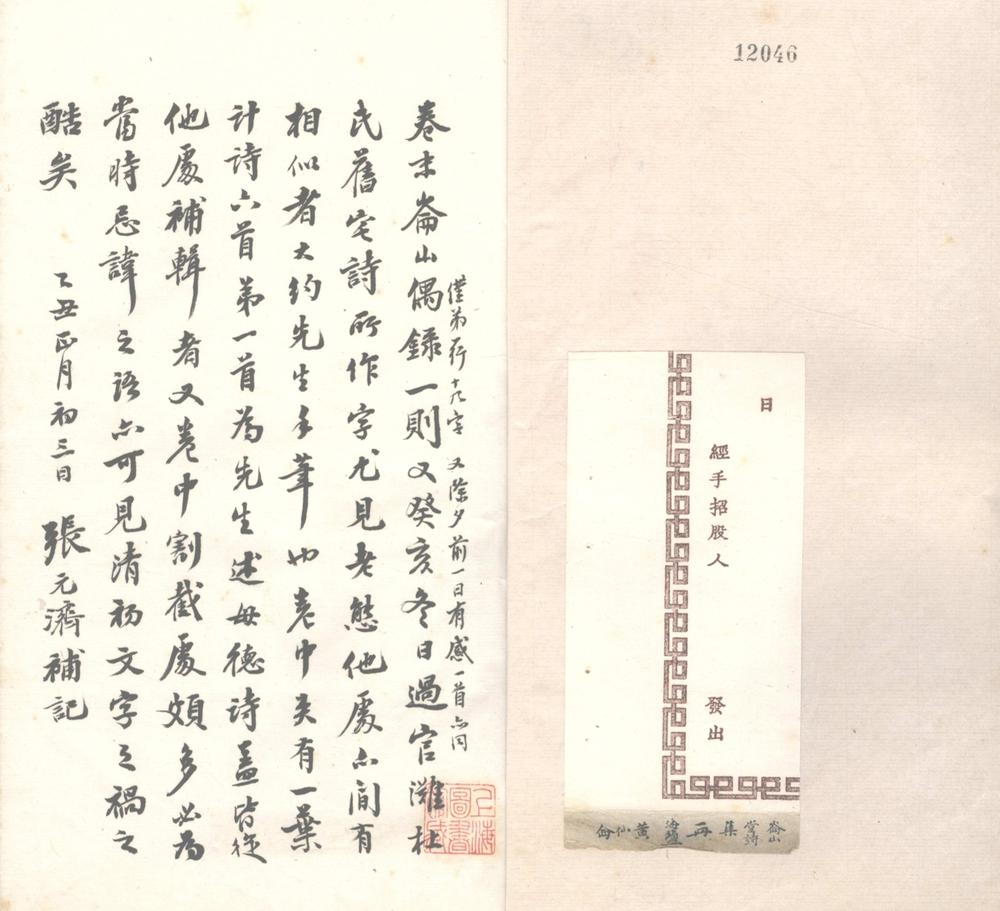 12046
卷末崙山偶錄一則又癸亥冬日過官灘杜
僅第一行十八字又除夕前一日有感一首亦同
氏舊宅詩所作字尤見老態他處亦間有
相似者大約先生手筆也卷中夹有一葉
計詩六首第一首為先生述母德詩蓋皆從
他處補輯者又卷中割截處頗多必為
當時忌諱之語亦可見清初文字之禍之
酷矣
乙丑正月初三日 張元濟補記
日
經手招股人 發出